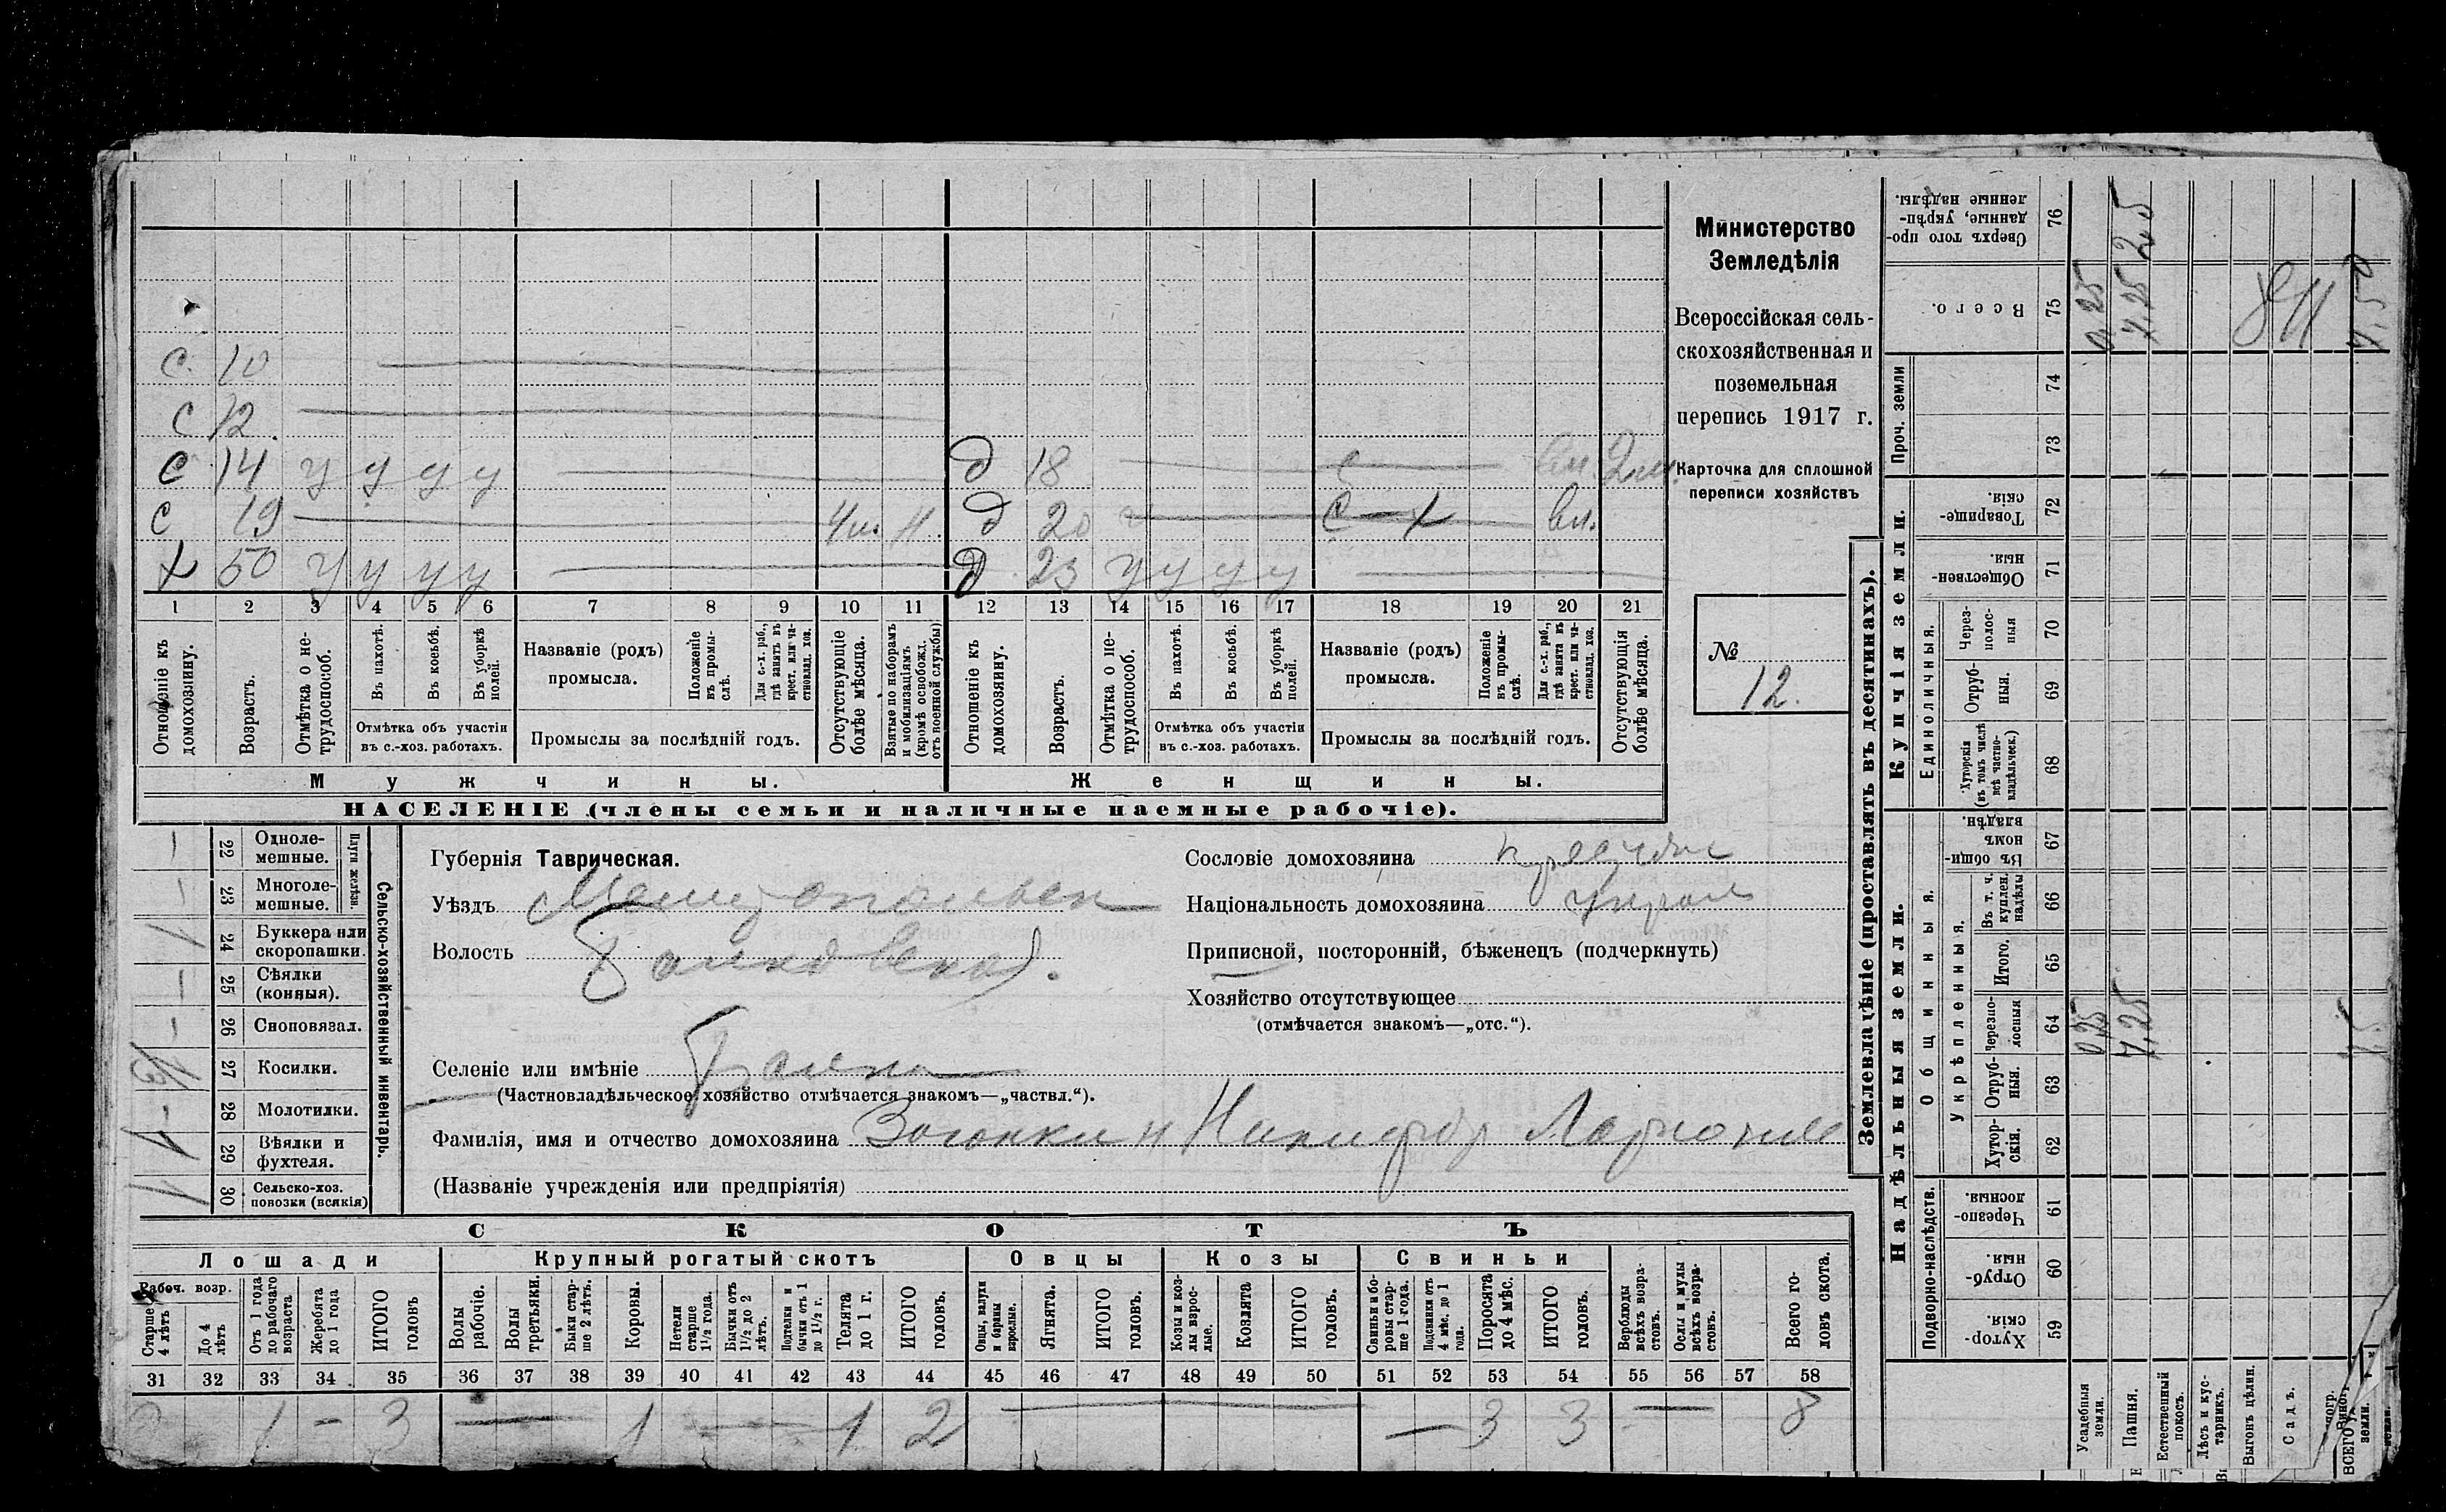 Министерство
Земледѣлія
Всероссійская сель-
скохозяйственная и
поземельная
перепись 1917 г.
Карточка для сплошной
переписи хозяйствъ
№
12.
С. 10
С 12.
С 14 у у у у
С 19 4 м. Н.
Х 50 у у у у
д 18 С 2 м.
д 20 С-Х вл.
д 23 у у у у
1 2 3 4 5 6 7 8 9 10 11 12 13 14 15 16 17 18 19 20 21
Отношеніе къ домохозяину.
Возрастъ.
Отмѣтка о не-трудоспособ.
Въ пахотѣ.
Въ косьбѣ.
Въ уборкѣ полей.
Отмѣтка объ участіи
въ с.-хоз. работахъ.
Названіе (родъ)
промысла.
Положеніе въ промы-слѣ.
Для с.-х. раб., гдѣ занятъ въ крест. или ча-стновлад. хоз.
Промыслы за послѣдній годъ.
Отсутствующіе болѣе мѣсяца.
Взятые по наборамъ и мобилизаціямъ (кромѣ освобожд. отъ военной службы)
Отношеніе къ домохозяину.
Возрастъ.
Отмѣтка о не-трудоспособ.
Въ пахотѣ.
Въ косьбѣ.
Въ уборкѣ полей.
Отмѣтка объ участіи
въ с.-хоз. работахъ.
Названіе (родъ)
промысла.
Положеніе въ промы-слѣ.
Для с.-х. раб., гдѣ занята въ крест. или ча-стновлад. хоз.
Промыслы за послѣдній годъ.
Отсутствующія болѣе мѣсяца.
Мужчины.
Женщины.
НАСЕЛЕНІЕ (члены семьи и наличные наемные рабочіе).
Сельско-хозяйственный инвентарь.
Плуги желѣзн.
22 Одноле-мешные. —
23 Многоле-мешные. —
24 Буккера или скоропашки. 1
25 Сѣялки (конныя). —
26 Сноповязал. —
27 Косилки. 1/3
28 Молотилки. —
29 Вѣялки и фухтеля. 1
30 Сельско-хоз. повозки (всякія) 1
Губернія Таврическая.
Уѣздъ Мелитопольск
Волость Балковская.
Селеніе или имѣніе Балки
(Частновладѣльческое хозяйство отмѣчается знакомъ—„частвл.“).
Фамилія, имя и отчество домохозяина Никифор
(Названіе учрежденія или предпріятія)
Сословіе домохозяина
Національность домохозяина Украин
Приписной, посторонній, бѣженецъ (подчеркнуть)
Хозяйство отсутствующее
(отмѣчается знакомъ—„отс.“).
СКОТЪ
Лошади
Крупный рогатый скотъ
Овцы
Козы
Свиньи
Рабоч. возр.
Старше 4 лѣтъ
До 4 лѣтъ
Отъ 1 года до рабочаго возраста
Жеребята до 1 года
ИТОГО головъ
Волы рабочіе.
Волы третьяки.
Быки стар-ше 2 лѣтъ.
Коровы.
Нетели старше 1½ года.
Бычки отъ 1½ до 2 лѣтъ.
Подтелки и бычки отъ 1 до 1½ г.
Телята до 1 г.
ИТОГО головъ.
Овцы, валухи и бараны взрослые.
Ягнята.
ИТОГО головъ.
Козы и коз-лы взрос-лые.
Козлята
ИТОГО головъ.
Свиньи и бо-ровы стар-ше 1 года.
Подсвинки отъ 4 мѣс. до 1 года.
Поросята до 4 мѣс.
ИТОГО головъ.
Верблюды всѣхъ возра-стовъ.
Ослы и мулы всѣхъ возра-стовъ.
Всего го-ловъ скота.
31 32 33 34 35 36 37 38 39 40 41 42 43 44 45 46 47 48 49 50 51 52 53 54 55 56 57 58
2 1 — 3 — 1 — 1 2 — — 3 3 — 8
Землевладѣніе (проставлять въ десятинахъ).
Надѣльныя земли.
Купчія земли.
Проч. земли
Подворно-наслѣдств.
Общинныя.
Укрѣпленныя.
Единоличныя.
Сверхъ того про-данные, укрѣп-ленные надѣлы. 76
Всего. 75
74
73
Товарище-скія. 72
Обществен-ныя. 71
Через-полос-ныя 70
Отруб-ныя. 69
Хуторскія (въ томъ числѣ всѣ частно-владѣльческ.) 68
Въ общи-номъ владѣн. 67
Въ т. ч. куплен. надѣлы 66
Итого. 65
Черезпо-лосныя 64
Отруб-ныя. 63
Хутор-скія. 62
Черезпо-лосныя. 61
Отруб-ныя. 60
Хутор-скія. 59
Усадебныя земли.
Пашня.
Естественный покосъ.
Лѣсъ и кус-тарникъ.
Выгонъ цѣлин.
Садъ.
ВСЕГО земли.
0,25 7,25 7,5
0,25 7,25 7,50